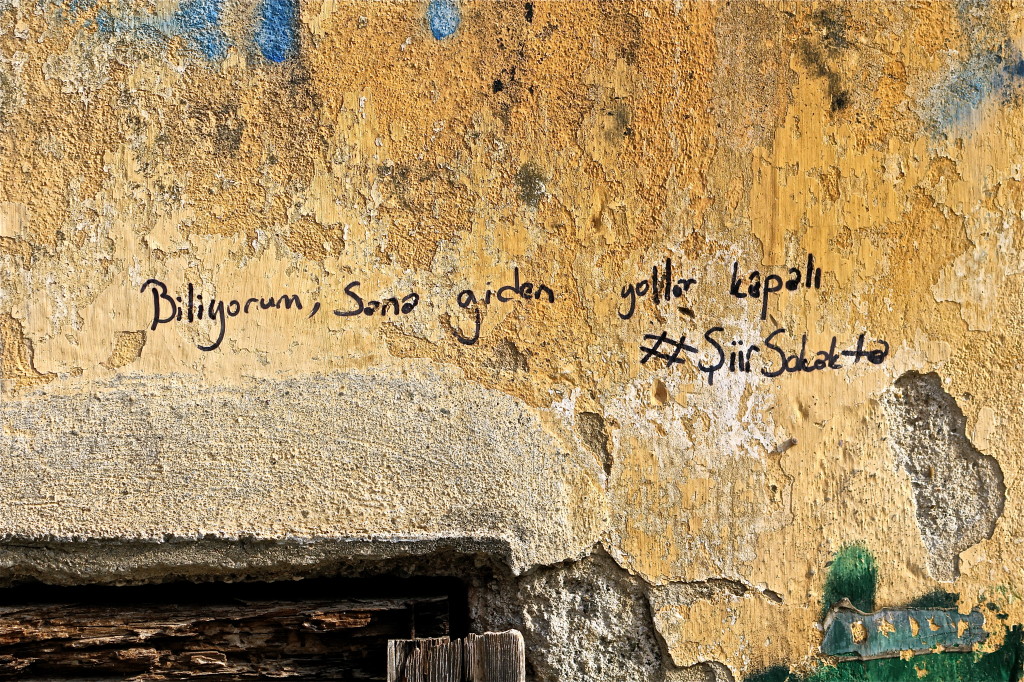 Biliyorum, sana giden yollar kapalı
#ŞiirSokakta